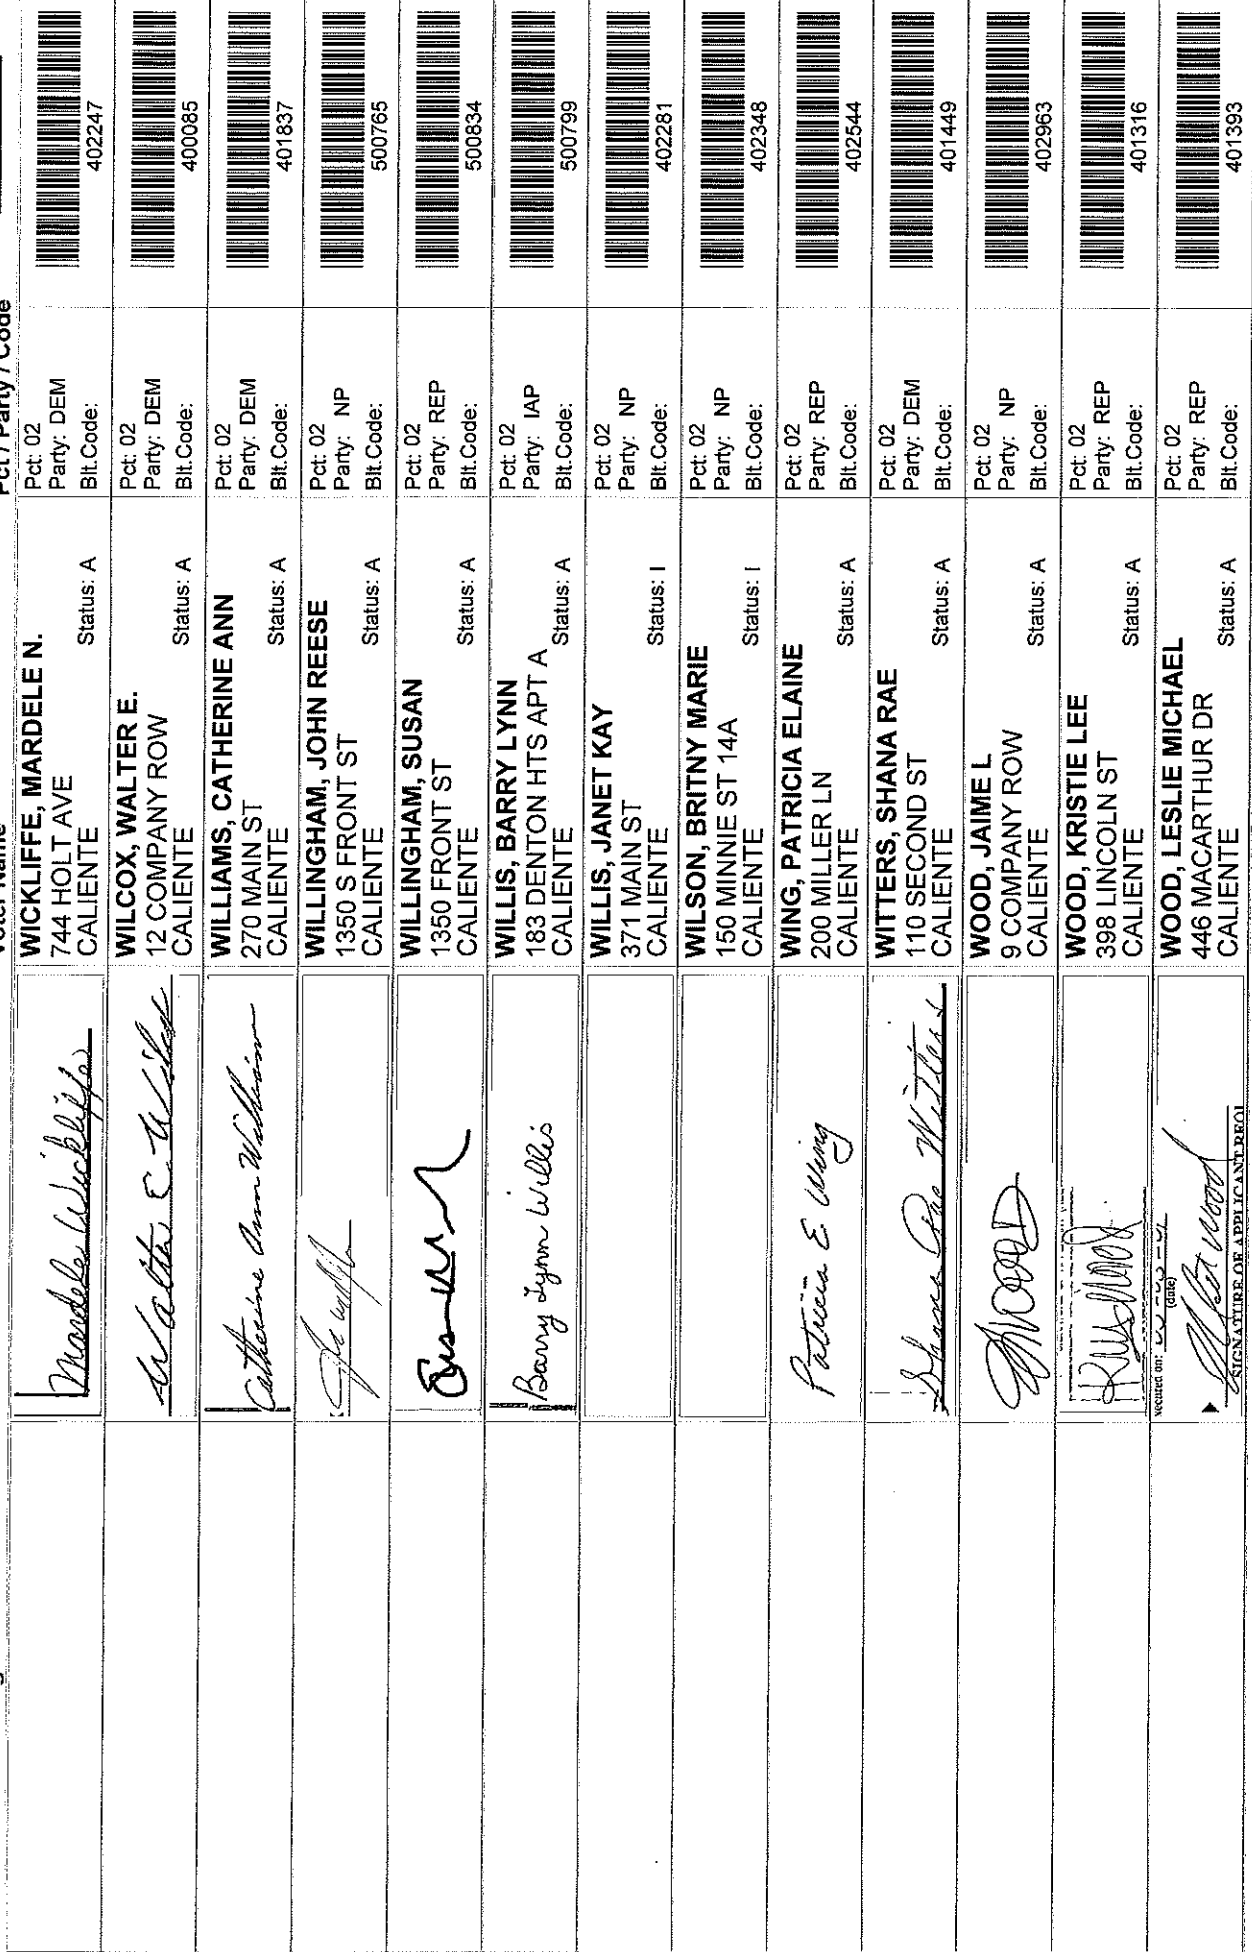 Voter Name
Pct / Party / Code
Mardele Wickliffe
WICKLIFFE, MARDELE N.
744 HOLT AVE
CALIENTE
Status: A
Pct: 02
Party: DEM
Blt.Code:
402247
Walter E. Wilcox
WILCOX, WALTER E.
12 COMPANY ROW
CALIENTE
Status: A
Pct: 02
Party: DEM
Blt.Code:
400085
Catherine Ann Williams
WILLIAMS, CATHERINE ANN
270 MAIN ST
CALIENTE
Status: A
Pct: 02
Party: DEM
Blt.Code:
401837
WILLINGHAM, JOHN REESE
1350 S FRONT ST
CALIENTE
Status: A
Pct: 02
Party: NP
Blt.Code:
500765
WILLINGHAM, SUSAN
1350 FRONT ST
CALIENTE
Status: A
Pct: 02
Party: REP
Blt.Code:
500834
Barry Lynn Willis
WILLIS, BARRY LYNN
183 DENTON HTS APT A
CALIENTE
Status: A
Pct: 02
Party: IAP
Blt.Code:
500799
WILLIS, JANET KAY
371 MAIN ST
CALIENTE
Status: I
Pct: 02
Party: NP
Blt.Code:
402281
WILSON, BRITNY MARIE
150 MINNIE ST 14A
CALIENTE
Status: I
Pct: 02
Party: NP
Blt.Code:
402348
Patricia E. Wing
WING, PATRICIA ELAINE
200 MILLER LN
CALIENTE
Status: A
Pct: 02
Party: REP
Blt.Code:
402544
Shana Rae Witters
WITTERS, SHANA RAE
110 SECOND ST
CALIENTE
Status: A
Pct: 02
Party: DEM
Blt.Code:
401449
WOOD, JAIME L
9 COMPANY ROW
CALIENTE
Status: A
Pct: 02
Party: NP
Blt.Code:
402963
WOOD, KRISTIE LEE
398 LINCOLN ST
CALIENTE
Status: A
Pct: 02
Party: REP
Blt.Code:
401316
(date)
SIGNATURE OF APPLICANT
WOOD, LESLIE MICHAEL
446 MACARTHUR DR
CALIENTE
Status: A
Pct: 02
Party: REP
Blt.Code:
401393